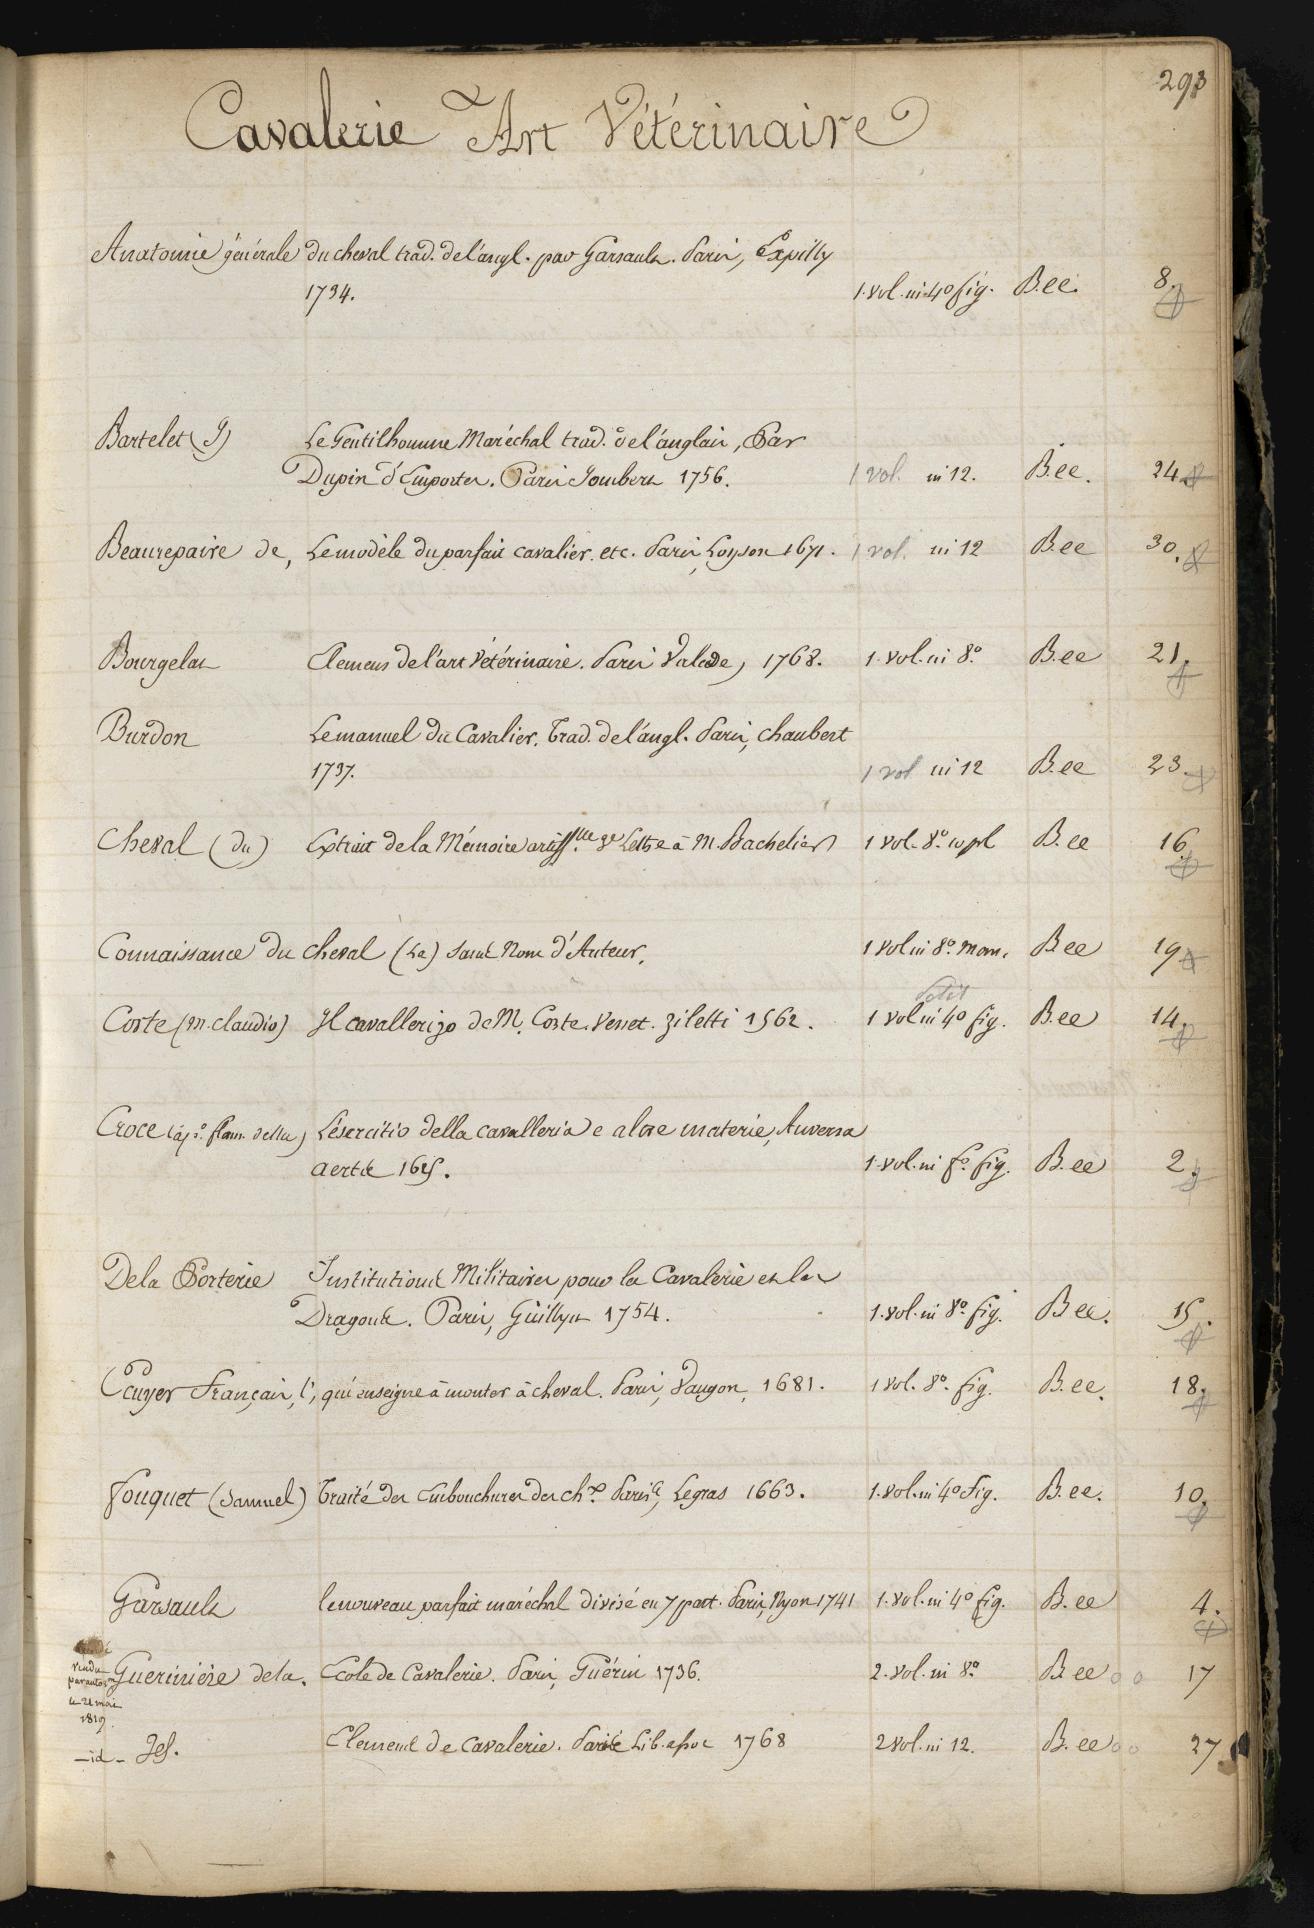 293
Cavalerie Art Vétérinaire
Anatomie générale du cheval trad. de l'angl. par Garsault. Paris, Expilly
1734. 1. vol. in-4º fig. B.ee. 8.
Bartelet (J) Le Gentilhomme Maréchal trad. de l'anglais, Par
Dupin d'Emportes. Paris Jombert 1756. 1 vol. in 12. B.ee. 24
Beaurepaire de, Le modèle du parfait cavalier. etc. Paris, Loyson 1671. 1 vol. in 12 B.ee 30.
Bourgelat Elemens de l'art Vétérinaire. Paris Valade, 1768. 1. vol. in 8.º B.ee 21.
Burdon Le manuel du Cavalier. Trad. de l'angl. Paris, Chaubert
1737. 1 vol in 12 B.ee 23.
Cheval (du) Extrait de la Mémoire artiff.lle 3e Lettre à M. Bachelier 1 vol. 8.º pl B.ee 16
Connaissance du cheval (La) Sans Nom d'Auteur. 1 vol in 8.º man. B.ee 19
petit
Coste (M. Claudio) Il cavallerizo de M. Coste. Venet. Ziletti 1562. 1 vol in 4º fig. B.ee 14.
Croce (Cap.º flam. della) L'esercitio della cavalleria e altre materie, Anversa
Aertss 1625. 1. vol. in fº. fig. B.ee 2.
De la Porterie Institutions Militaires pour la Cavalerie et les
Dragons. Paris, Guillyn 1754. 1. vol. in 8º. fig. B.ee. 15.
Ecuyer Français, l', qui enseigne à monter à cheval. Paris, Vaugon, 1681. 1 vol. 8º. fig. B.ee. 18.
Fouquet (Samuel) Traité des Embouchures des ch.x Paris, Legras 1663. 1. vol. in 4º fig. B.ee. 10.
Garsault le nouveau parfait maréchal divisé en 7 part. Paris, Nyon 1741 1. vol. in 4º fig. B.ee 4.
vendu
par autor.on
le 21 mai
1819.
Guerinière de la. Ecole de Cavalerie. Paris, Guérin 1736. 2. vol. in 8.º B.ee 17
—id— Id. Elemens de Cavalerie. Paris Lib. assoc 1768 2 vol. in 12. B.ee 27